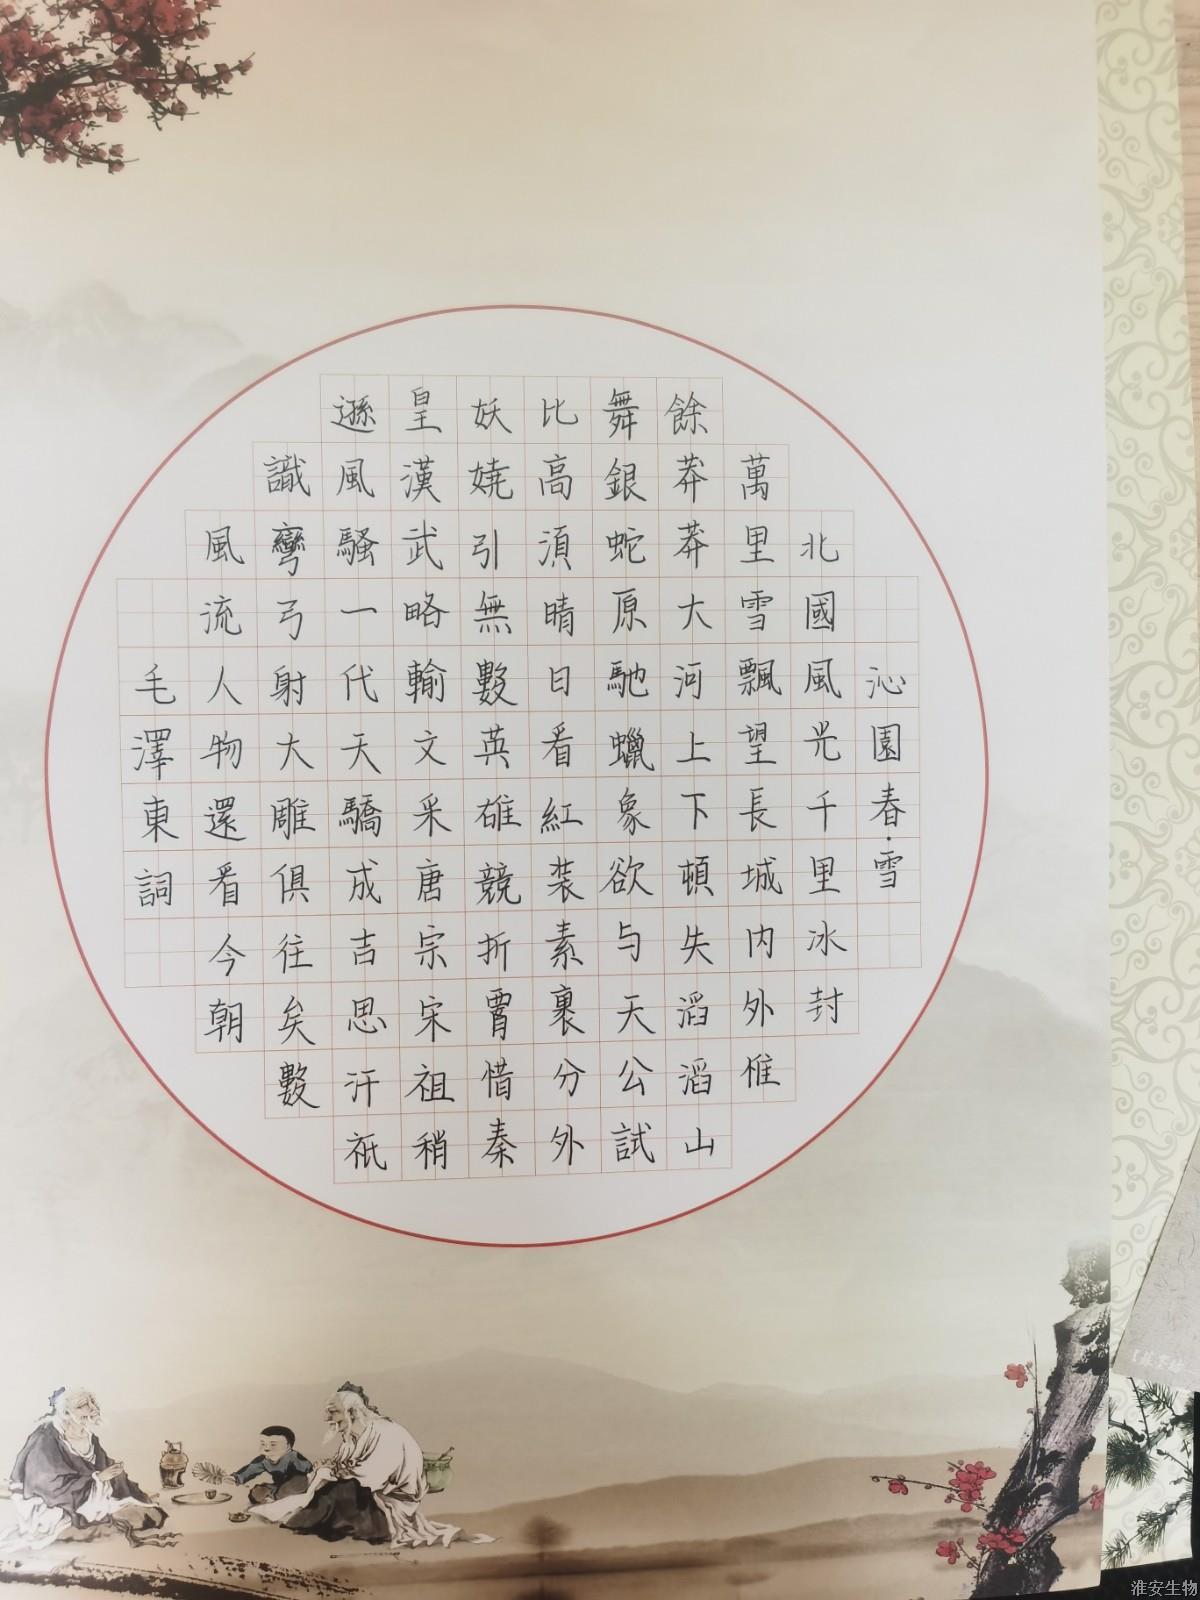 沁園春·雪
北國風光千里冰封
萬里雪飄望長城内外惟
餘莽莽大河上下頓失滔滔山
舞銀蛇原馳蠟象欲与天公試
比高須晴日看紅装素裹分外
妖嬈引無數英雄競折腰惜秦
皇漢武略輸文采唐宗宋祖稍
遜風騷一代天驕成吉思汗祗
識彎弓射大雕俱往矣數
風流人物還看今朝
毛澤東詞
淮安生物